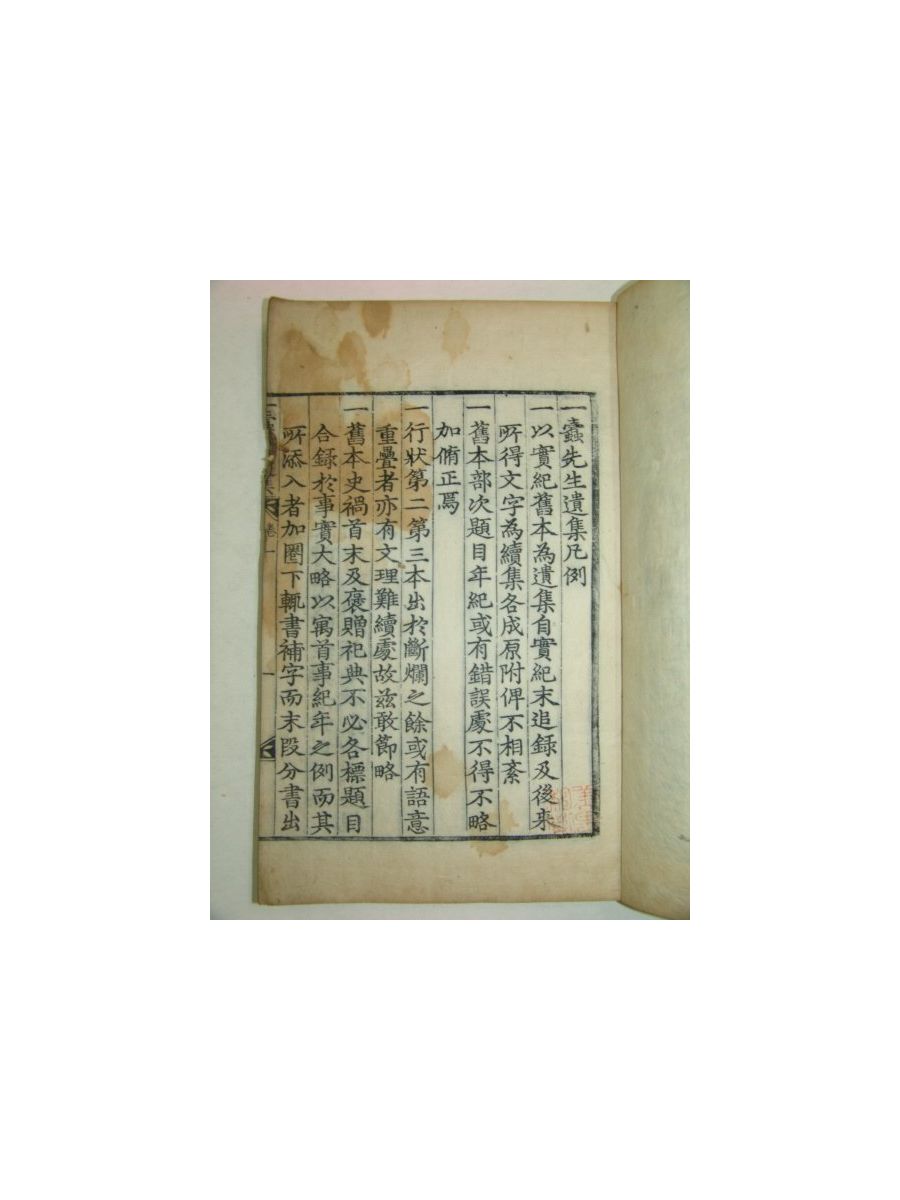 一蠹先生遺集凡例
一以實紀舊本為遺集自實紀末追錄及後来
所得文字為續集各成原附俾不相紊
一舊本部次題目年紀或有錯誤處不得不略
加脩正焉
一行狀第二第三本出於斷爛之餘或有語意
重疊者亦有文理難續處故玆敢節略
一舊本史禍首末及褒贈祀典不必各標題目
合錄於事實大略以寓首事紀年之例而其
所添入者加圈下輒書補字而末段分書出
集 卷一 一